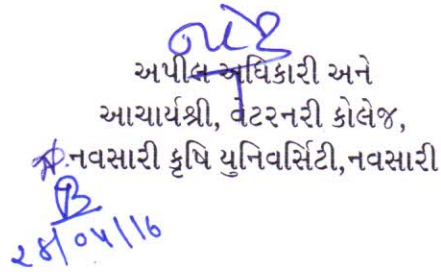 અપીલ અધિકારી અને
આચાર્યશ્રી, વેટરનરી કોલેજ,
નવસારી કૃષિ યુનિવર્સિટી,નવસારી